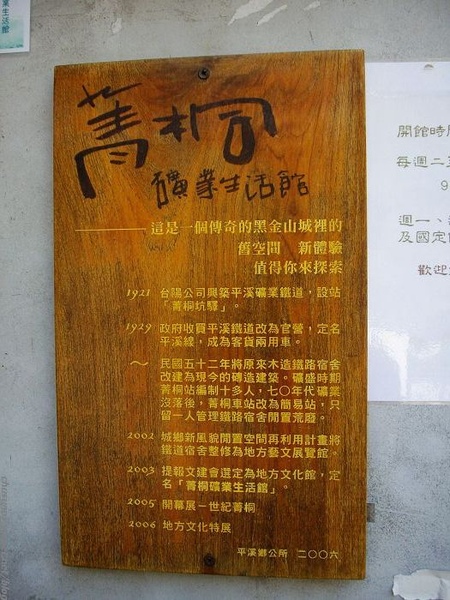 業生活館
菁桐
礦業生活館
這是一個傳奇的黑金山城裡的
舊空間 新體驗
值得你來探索
1921 台陽公司興築平溪礦業鐵道，設站
「菁桐坑驛」。
1929 政府收買平溪鐵道改為官營，定名
平溪線，成為客貨兩用車。
～ 民國五十二年將原來木造鐵路宿舍
改建為現今的磚造建築。礦盛時期
菁桐站編制十多人，七〇年代礦業
沒落後，菁桐車站改為簡易站，只
留一人管理鐵路宿舍閒置荒廢。
2002 城鄉新風貌閒置空間再利用計畫將
鐵道宿舍整修為地方藝文展覽館。
2003 提報文建會選定為地方文化館，定
名「菁桐礦業生活館」。
2005 開幕展－世紀菁桐
2006 地方文化特展
平溪鄉公所 二〇〇六
開館時
每週二
9
週一、
及國定
歡迎